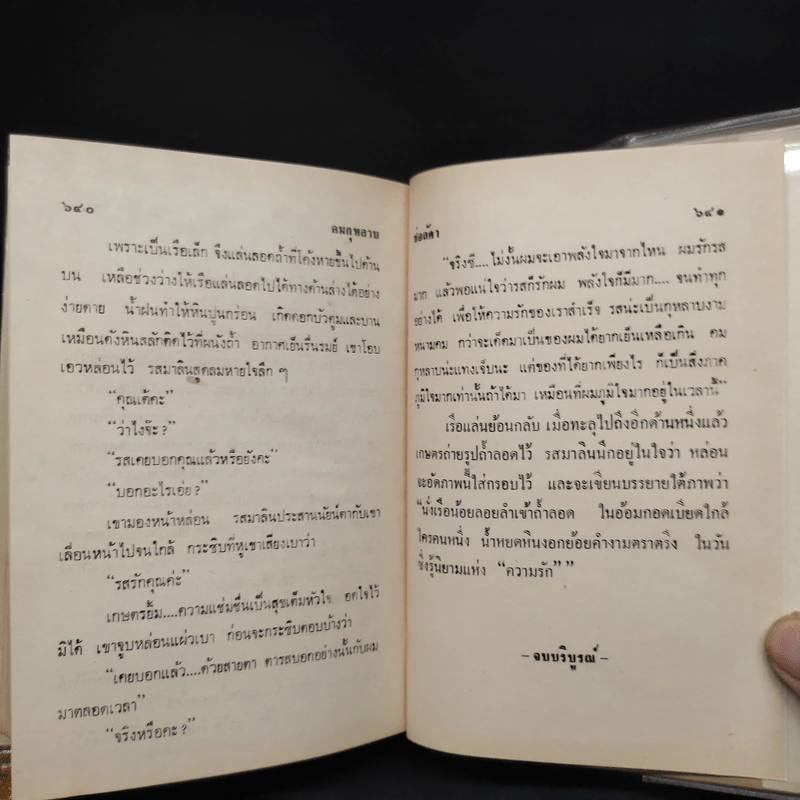 ๖๔๐
คมกุหลาบ
เพราะเป็นเรือเล็ก จึงแล่นลอดถ้ำที่โค้งหายขึ้นไปด้าน
บน เหลือช่วงว่างให้เรือแล่นลอดไปได้ทางด้านล่างได้อย่าง
ง่ายดาย น้ำฝนทำให้หินปูนกร่อน เกิดดอกบัวตูมและบาน
เหมือนดังหินสลักติดไว้ที่ผนังถ้ำ อากาศเย็นรื่นรมย์ เขาโอบ
เอวหล่อนไว้ รสมาลินสูดลมหายใจลึก ๆ
“คุณเด้คะ”
“ว่าไงจ๊ะ ?”
“รสเคยบอกคุณแล้วหรือยังคะ”
“บอกอะไรเอ่ย ?”
เขามองหน้าหล่อน รสมาลินประสานนัยน์ตากับเขา
เลื่อนหน้าไปจนใกล้ กระซิบที่หูเขาเสียงเบาว่า
“รสรักคุณค่ะ”
เกษตรยิ้ม....ความแช่มชื่นเป็นสุขเต็มหัวใจ อดใจไว้
มิได้ เขาจูบหล่อนแผ่วเบา ก่อนจะกระซิบตอบบ้างว่า
“เคยบอกแล้ว....ด้วยสายตา ตารสบอกอย่างนั้นกับผม
มาตลอดเวลา”
“จริงหรือคะ ?”
๖๔๑
ช่อลัดา
“จริงซี....ไม่งั้นผมจะเอาพลังใจมาจากไหน ผมรักรส
มาก แล้วพอแน่ใจว่ารสก็รักผม พลังใจก็มีมาก....จนทำทุก
อย่างได้ เพื่อให้ความรักของเราสำเร็จ รสน่ะเป็นกุหลาบงาม
หนามคม กว่าจะเด็ดมาเป็นของผมได้ยากเย็นเหลือเกิน คม
กุหลาบน่ะแทงเจ็บนะ แต่ของที่ได้ยากเพียงไร ก็เป็นสิ่งภาค
ภูมิใจมากเท่านั้นถ้าได้มา เหมือนที่ผมภูมิใจมากอยู่ในเวลานี้”
เรือแล่นย้อนกลับ เมื่อทะลุไปถึงอีกด้านหนึ่งแล้ว
เกษตรถ่ายรูปถ้ำลอดไว้ รสมาลินนึกอยู่ในใจว่า หล่อน
จะอัดภาพนี้ใส่กรอบไว้ และจะเขียนบรรยายใต้ภาพว่า
“นั่งเรือน้อยลอยลำเข้าถ้ำลอด ในอ้อมกอดเบียดใกล้
ใครคนหนึ่ง น้ำหยดหินงอกย้อยคำงามตราตรึง ในวัน
ซึ่งรู้นิยามแห่ง “ความรัก” ”
– จบบริบูรณ์ –